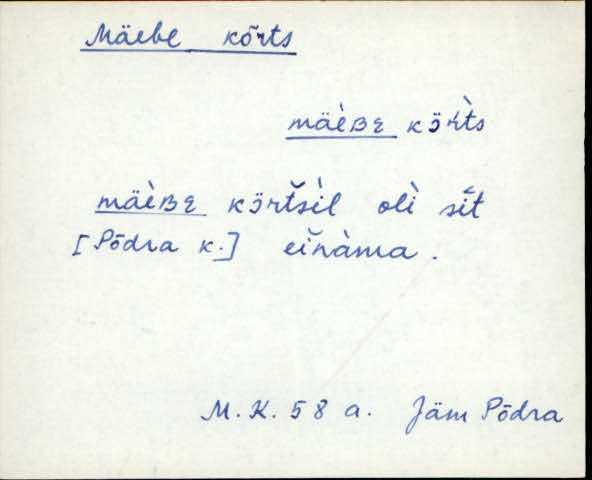 Mäebe kõrts
mäèʙε kɔ̈r̀ts
mäèʙε kɔ̈rt̆sìl olì sĭt
[Põdra k.] eĭnàma.
M. K. 58 a. Jäm Põdra